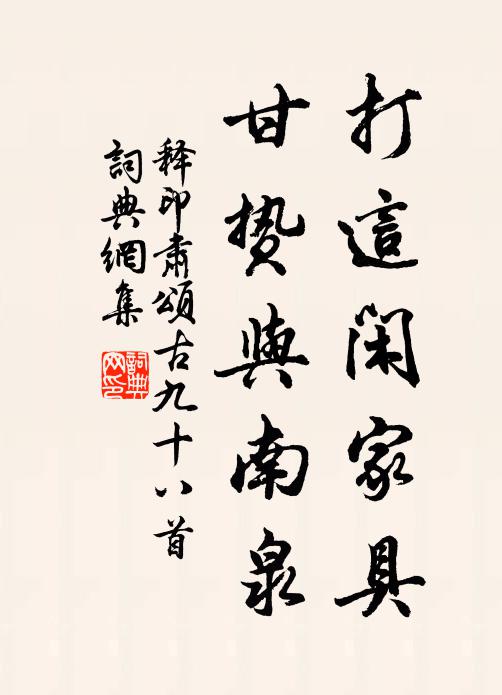 打這閑家具
甘贽與南泉
释印肅頌古九十八首
詞典網集
詞典网印